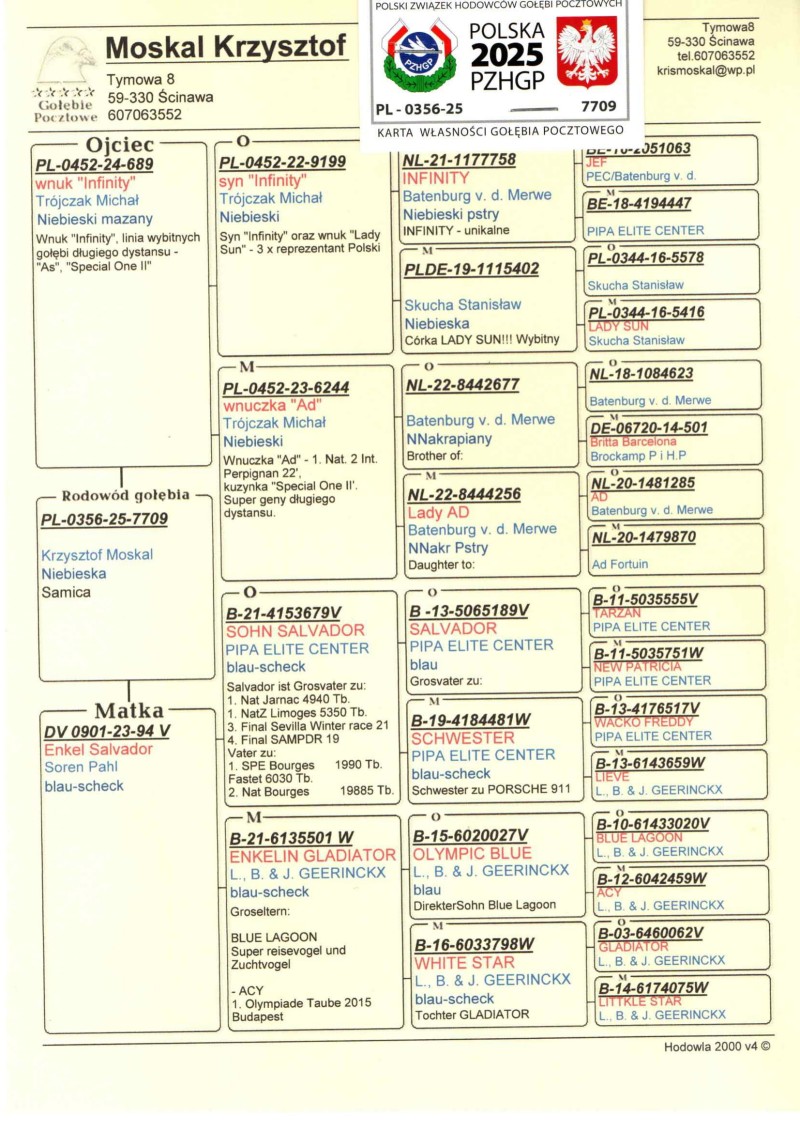 POLSKI ZWIĄZEK HODOWCÓW GOŁĘBI POCZTOWYCH
PZHGP
POLSKA
2025
PZHGP
PL - 0356-25
7709
KARTA WŁASNOŚCI GOŁĘBIA POCZTOWEGO
Gołębie
Pocztowe
Moskal Krzysztof
Tymowa 8
59-330 Ścinawa
607063552
Tymowa8
59-330 Ścinawa
tel.607063552
krismoskal@wp.pl
Ojciec
PL-0452-24-689
wnuk "Infinity"
Trójczak Michał
Niebieski mazany
Wnuk "Infinity", linia wybitnych
gołębi długiego dystansu -
"As", "Special One II"
Rodowód gołębia
PL-0356-25-7709
Krzysztof Moskal
Niebieska
Samica
Matka
DV 0901-23-94 V
Enkel Salvador
Soren Pahl
blau-scheck
O
PL-0452-22-9199
syn "Infinity"
Trójczak Michał
Niebieski
Syn "Infinity" oraz wnuk "Lady
Sun" - 3 x reprezentant Polski
M
PL-0452-23-6244
wnuczka "Ad"
Trójczak Michał
Niebieski
Wnuczka "Ad" - 1. Nat. 2 Int.
Perpignan 22',
kuzynka "Special One II'.
Super geny długiego
dystansu.
O
B-21-4153679V
SOHN SALVADOR
PIPA ELITE CENTER
blau-scheck
Salvador ist Grosvater zu:
1. Nat Jarnac 4940 Tb.
1. NatZ Limoges 5350 Tb.
3. Final Sevilla Winter race 21
4. Final SAMPDR 19
Vater zu:
1. SPE Bourges 1990 Tb.
Fastet 6030 Tb.
2. Nat Bourges 19885 Tb.
M
B-21-6135501 W
ENKELIN GLADIATOR
L., B. & J. GEERINCKX
blau-scheck
Groseltern:
BLUE LAGOON
Super reisevogel und
Zuchtvogel
- ACY
1. Olympiade Taube 2015
Budapest
NL-21-1177758
INFINITY
Batenburg v. d. Merwe
Niebieski pstry
INFINITY - unikalne
M
PLDE-19-1115402
Skucha Stanisław
Niebieska
Córka LADY SUN!!! Wybitny
O
NL-22-8442677
Batenburg v. d. Merwe
NNakrapiany
Brother of:
M
NL-22-8444256
Lady AD
Batenburg v. d. Merwe
NNakr Pstry
Daughter to:
O
B -13-5065189V
SALVADOR
PIPA ELITE CENTER
blau
Grosvater zu:
M
B-19-4184481W
SCHWESTER
PIPA ELITE CENTER
blau-scheck
Schwester zu PORSCHE 911
O
B-15-6020027V
OLYMPIC BLUE
L., B. & J. GEERINCKX
blau
DirekterSohn Blue Lagoon
M
B-16-6033798W
WHITE STAR
L., B. & J. GEERINCKX
blau-scheck
Tochter GLADIATOR
JEF
PEC/Batenburg v. d.
M
BE-18-4194447
PIPA ELITE CENTER
O
PL-0344-16-5578
Skucha Stanisław
M
PL-0344-16-5416
LADY SUN
Skucha Stanisław
O
NL-18-1084623
Batenburg v. d. Merwe
M
DE-06720-14-501
Britta Barcelona
Brockamp P i H.P
O
NL-20-1481285
AD
Batenburg v. d. Merwe
M
NL-20-1479870
Ad Fortuin
O
B-11-5035555V
TARZAN
PIPA ELITE CENTER
M
B-11-5035751W
NEW PATRICIA
PIPA ELITE CENTER
O
B-13-4176517V
WACKO FREDDY
PIPA ELITE CENTER
M
B-13-6143659W
LIEVE
L., B. & J. GEERINCKX
O
B-10-61433020V
BLUE LAGOON
L., B. & J. GEERINCKX
M
B-12-6042459W
ACY
L., B. & J. GEERINCKX
O
B-03-6460062V
GLADIATOR
L., B. & J. GEERINCKX
M
B-14-6174075W
LITTKLE STAR
L., B. & J. GEERINCKX
Hodowla 2000 v4 ©